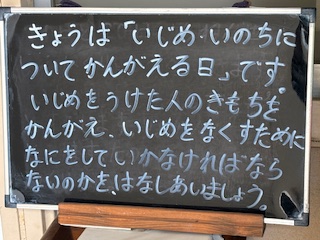 きょうは「いじめ・いのちに
ついてかんがえる日」です。
いじめをうけた人のきもちを
かんがえ、いじめをなくすために
なにをして、いかなければなら
ないのかを、はなしあいましょう。